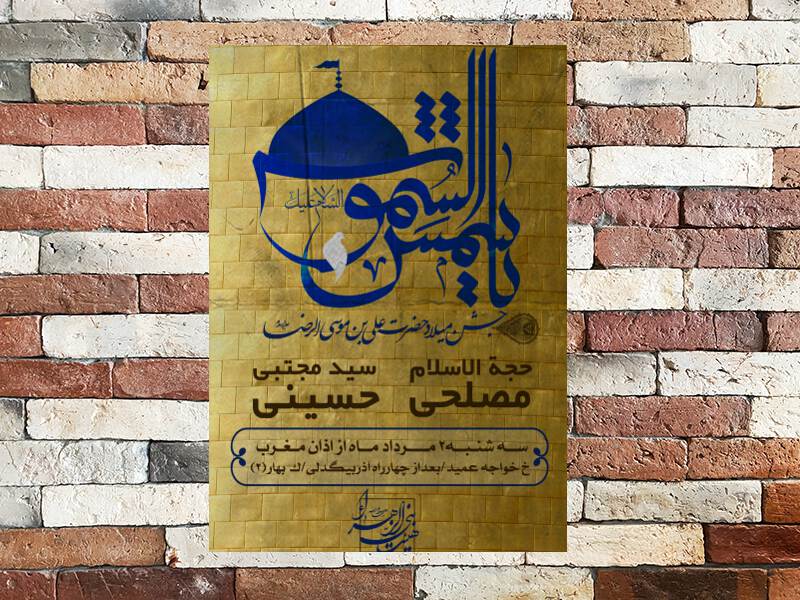 السلام علیک
یا شمس الشموس
جشن میلاد حضرت علی بن موسی الرضا
حجة الاسلام
مصلحی
سید مجتبی
حسینی
سه شنبه ۲ مرداد ماه از اذان مغرب
خ خواجه عمید/بعد از چهارراه اذربیگدلی/ک بهار(۲)